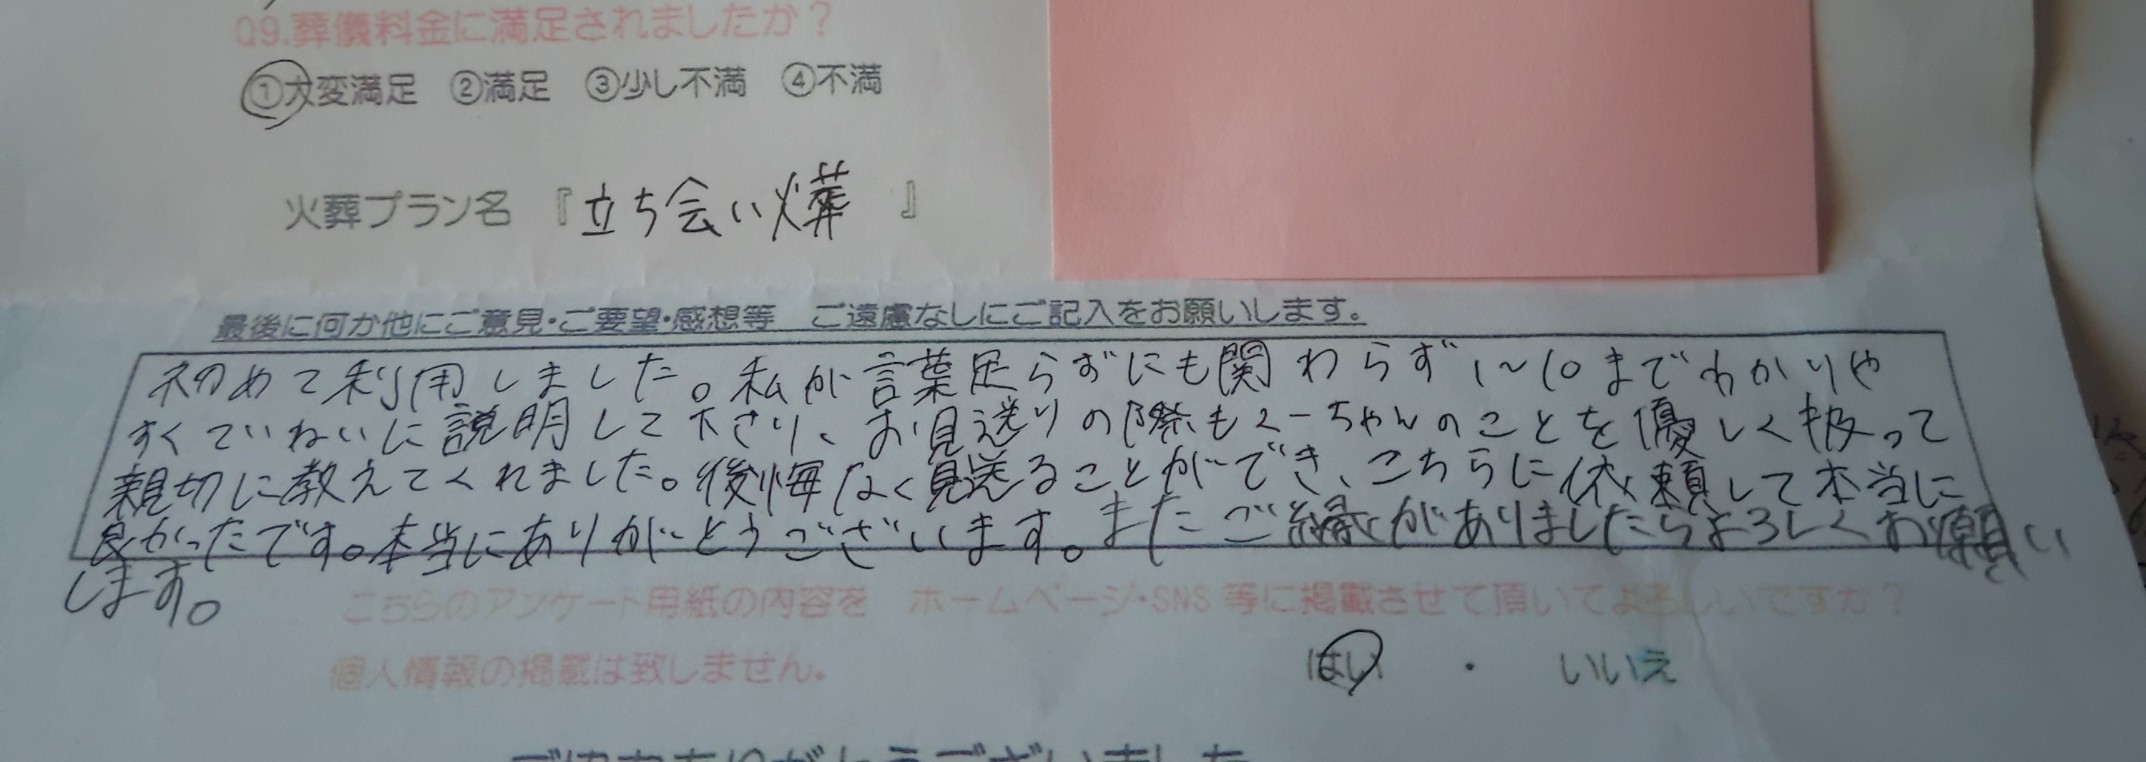 Q9.葬儀料金に満足されましたか？
①大変満足 ②満足 ③少し不満 ④不満
火葬プラン名 『立ち会い火葬 』
最後に何か他にご意見・ご要望・感想等 ご遠慮なしにご記入をお願いします。
初めて利用しました。私が言葉足らずにも関わらず1〜10までわかりや
すくていねいに説明して下さり、お見送りの際もくーちゃんのことを優しく扱って
親切に教えてくれました。後悔なく見送ることができ、こちらに依頼して本当に
良かったです。本当にありがとうございます。またご縁がありましたらよろしくお願い
します。
こちらのアンケート用紙の内容を ホームページ・SNS等に掲載させて頂いてよろしいですか？
個人情報の掲載は致しません。
はい ・ いいえ